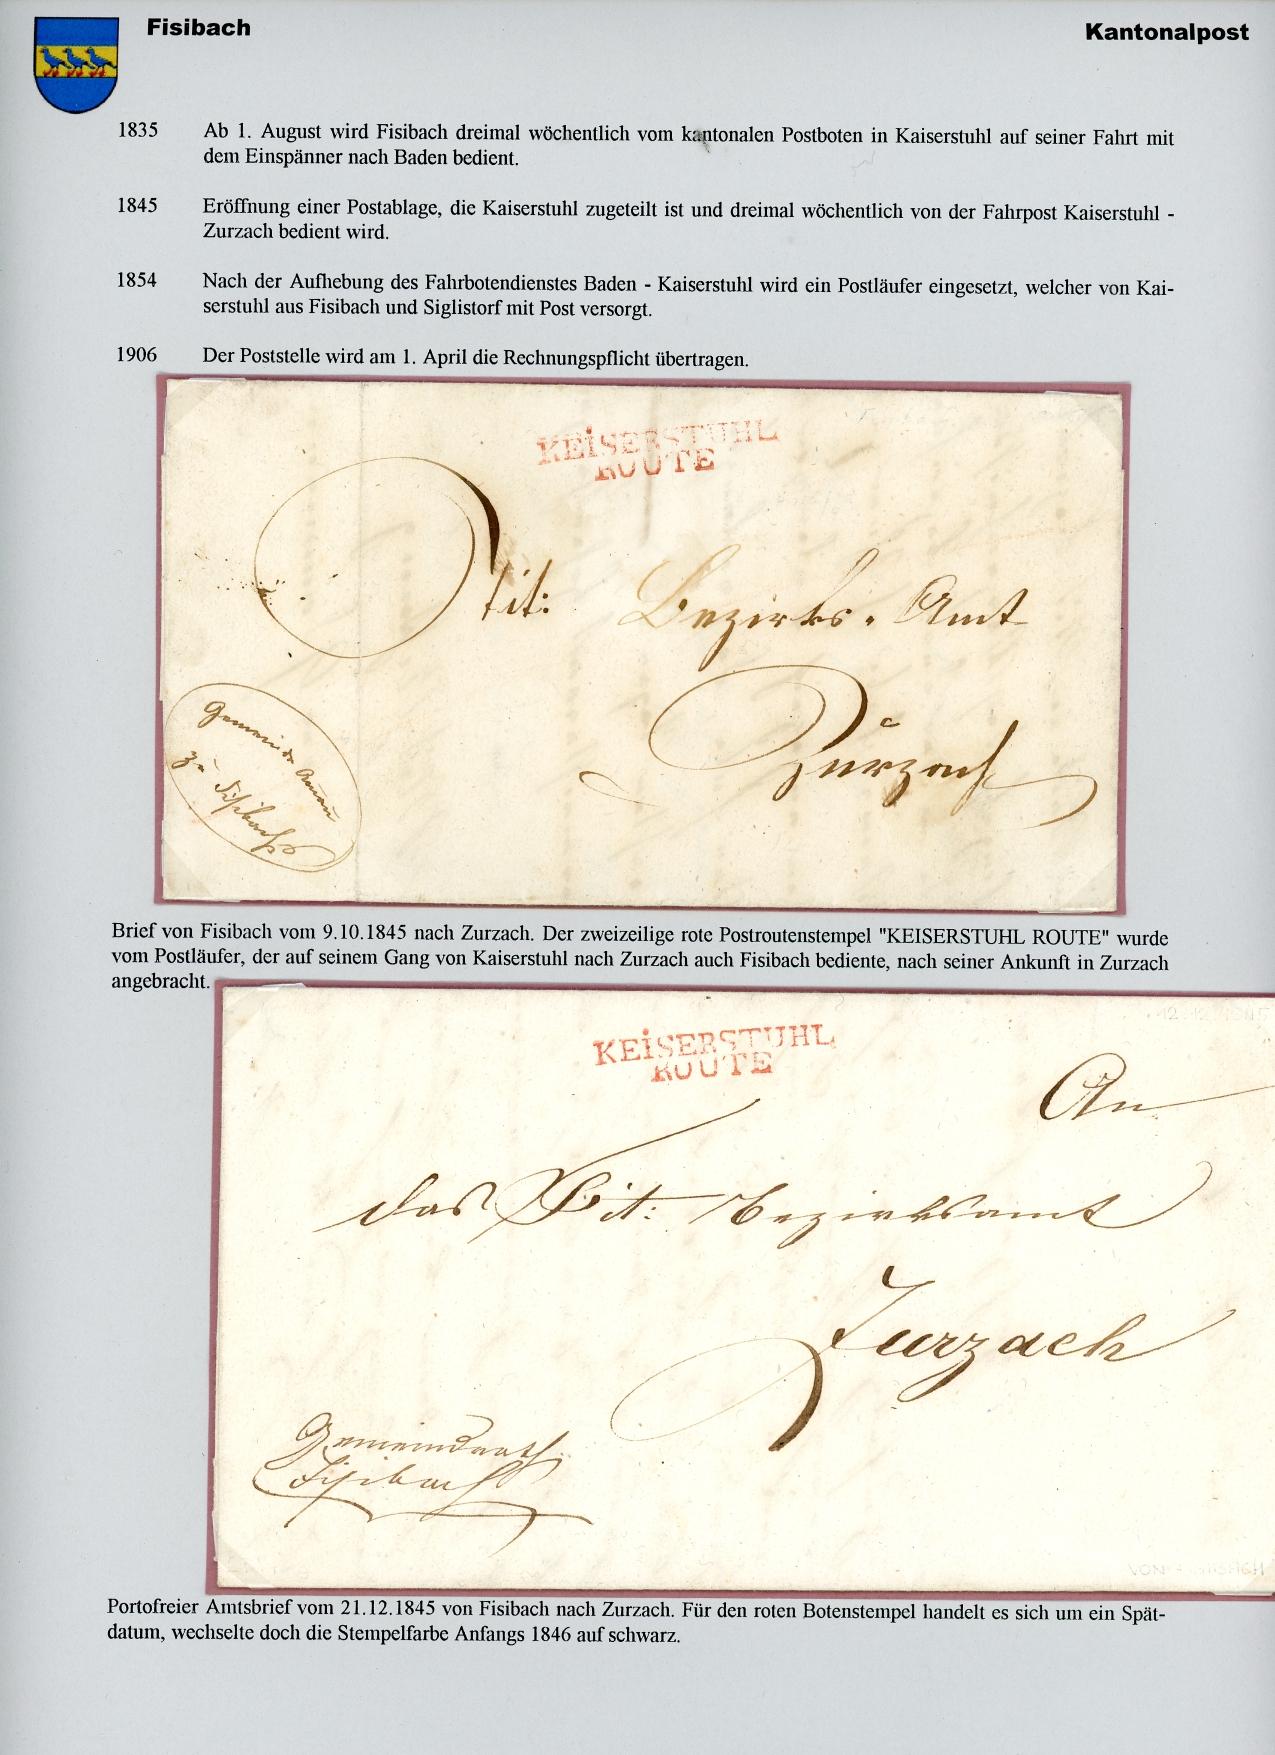 Fisibach
Kantonalpost
1835 Ab 1. August wird Fisibach dreimal wöchentlich vom kantonalen Postboten in Kaiserstuhl auf seiner Fahrt mit
dem Einspänner nach Baden bedient.
1845 Eröffnung einer Postablage, die Kaiserstuhl zugeteilt ist und dreimal wöchentlich von der Fahrpost Kaiserstuhl -
Zurzach bedient wird.
1854 Nach der Aufhebung des Fahrbotendienstes Baden - Kaiserstuhl wird ein Postläufer eingesetzt, welcher von Kai-
serstuhl aus Fisibach und Siglistorf mit Post versorgt.
1906 Der Poststelle wird am 1. April die Rechnungspflicht übertragen.
KEISERSTUHL
ROUTE
tit: Bezirks. Amt
Zurzach
Gemeinde Aman
zu Fisibach
Brief von Fisibach vom 9.10.1845 nach Zurzach. Der zweizeilige rote Postroutenstempel "KEISERSTUHL ROUTE" wurde
vom Postläufer, der auf seinem Gang von Kaiserstuhl nach Zurzach auch Fisibach bediente, nach seiner Ankunft in Zurzach
angebracht.
KEISERSTUHL
ROUTE
An
das Tit: Bezirksamt
Zurzach
Gemeindrath
Fisibach
Portofreier Amtsbrief vom 21.12.1845 von Fisibach nach Zurzach. Für den roten Botenstempel handelt es sich um ein Spät-
datum, wechselte doch die Stempelfarbe Anfangs 1846 auf schwarz.